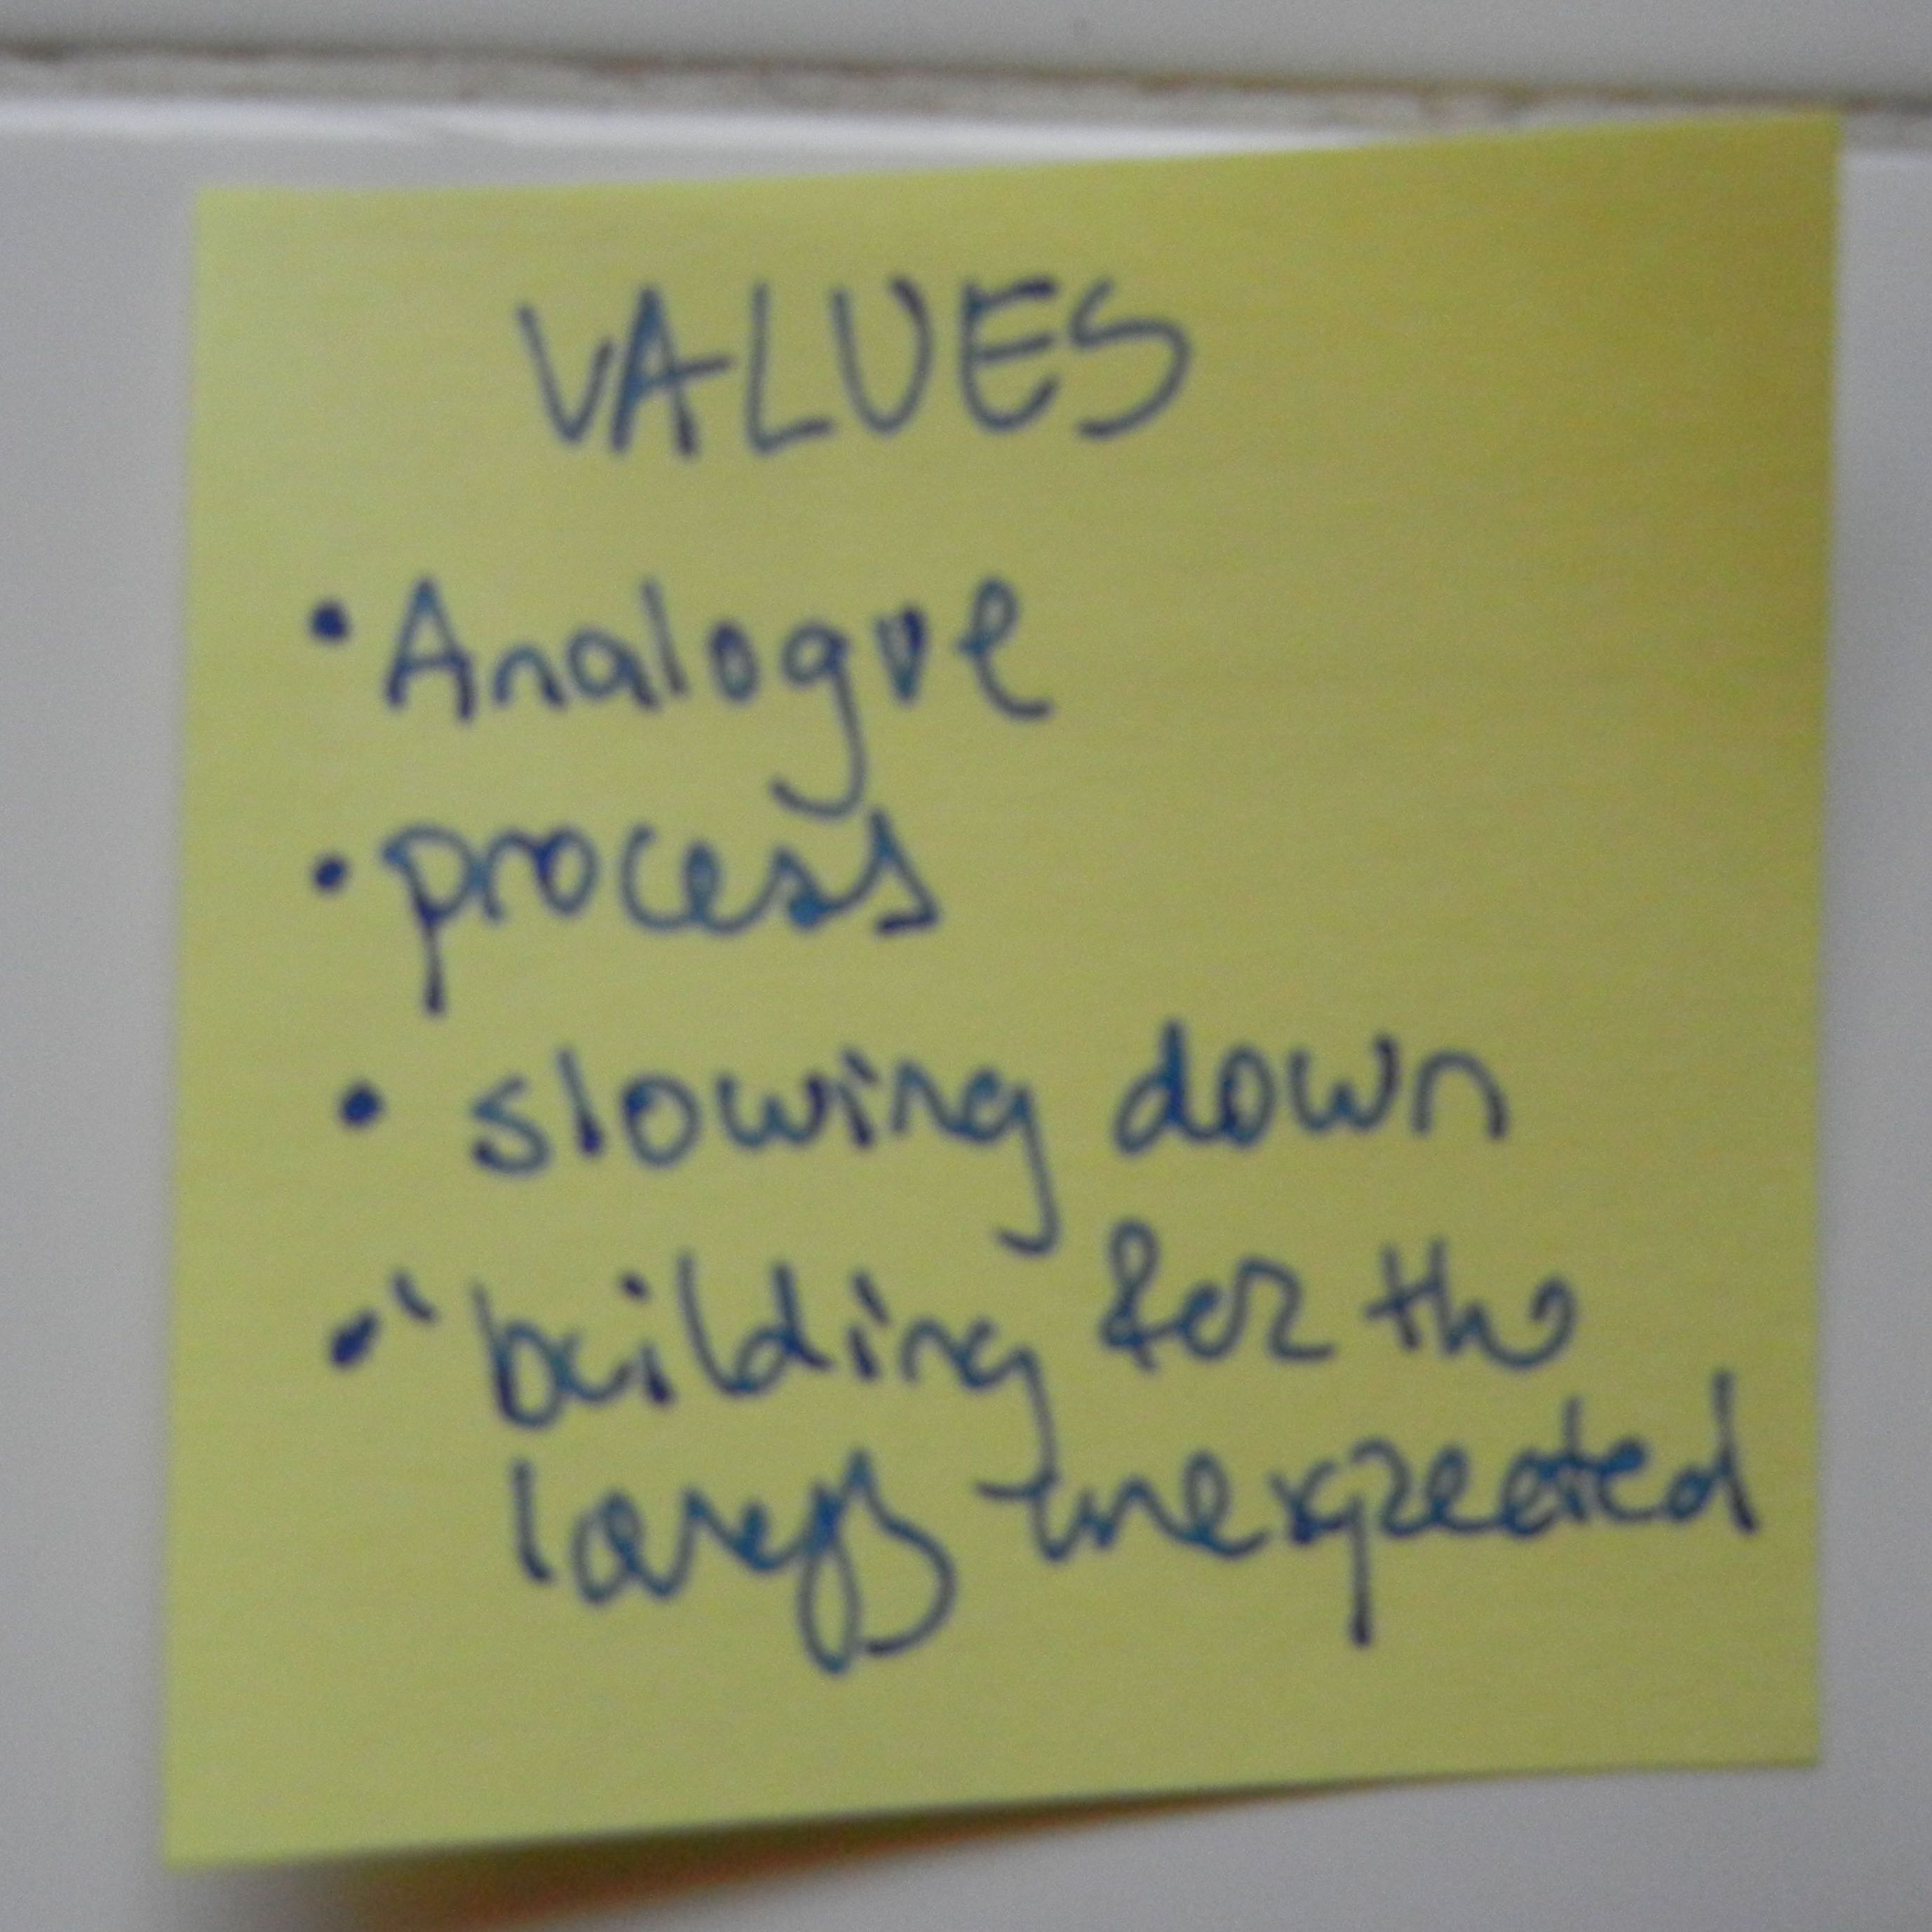 VALUES
• Analogue
• process
• slowing down
• building for the
unexpected